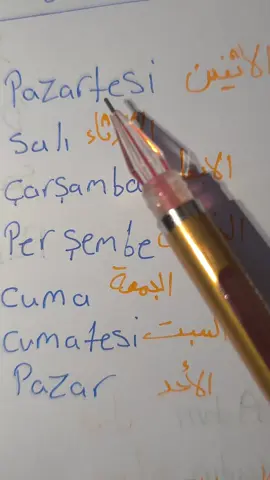 Pazartesi الاثنين
Salı
Çarşamba
Perşembe
Cuma الجمعة
Cumatesi السبت
Pazar الأحد